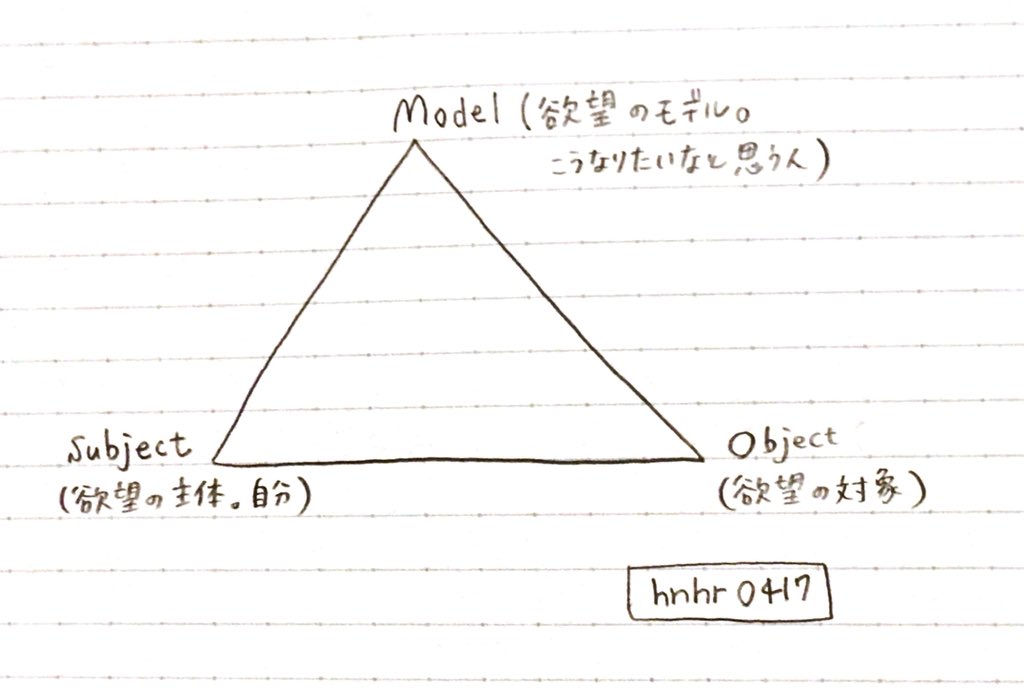 Model (欲望のモデル。
こうなりたいなと思う人)
Subject
(欲望の主体。自分)
Object
(欲望の対象)
hnhr0417